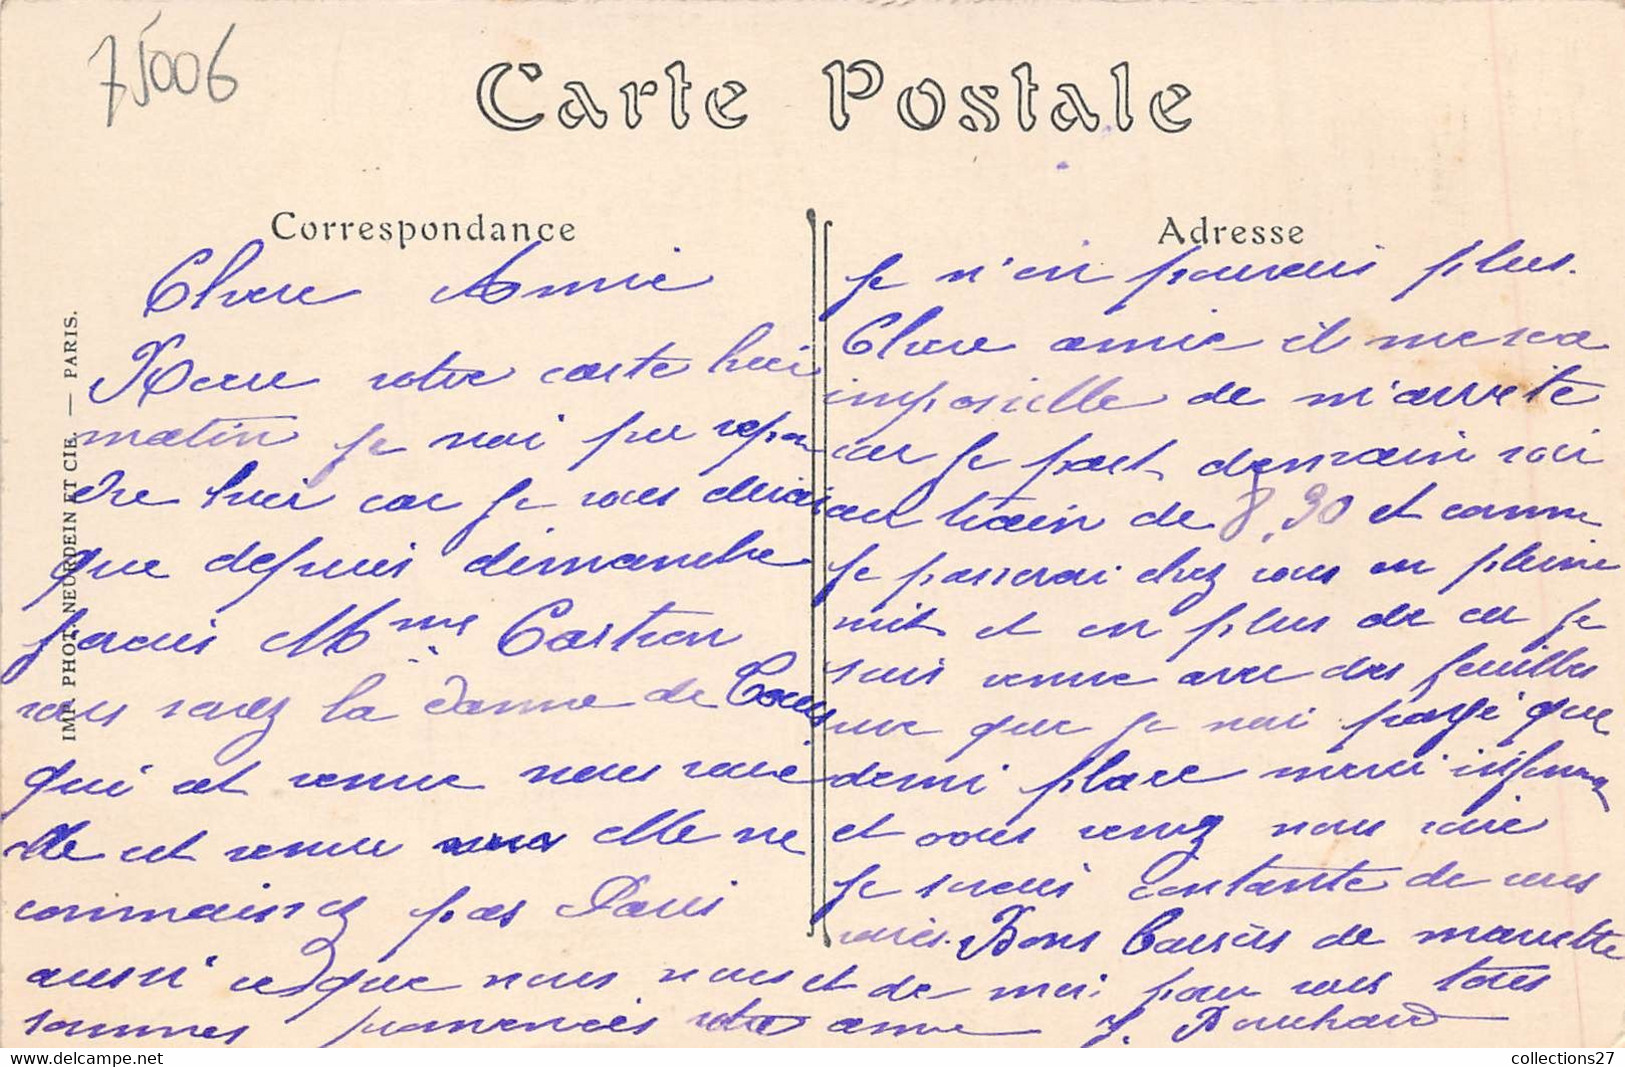 75006
Carte Postale
Correspondance
Adresse
IMP. PHOT. NEURDEIN ET CIE. — PARIS.
Chere Amie
Recu votre carte hier
matin je nai pu repon
dre hier car je vous dirais
que depuis dimanche
javais Mme Castron
vous savez la dame de Tours
qui est venue nous voir
elle est venue elle ne
connaissez pas Paris
aussi ce que nous nous
sommes promenées votre amie
Je n'en pouvais plus.
Chere amie il me sera
impossible de m'arrete
car je part demain soir
au train de 8.30 et comme
je passerai chez vous en pleine
nuit et en plus de ca je
suis venue avec des feuilles
que je nai payé que
demi place merci infiniment
et vous venez nous voir
je serais contante de vous
voir. Bons baisers de
et de moi pour vous tous
J. Bouchard
collections27